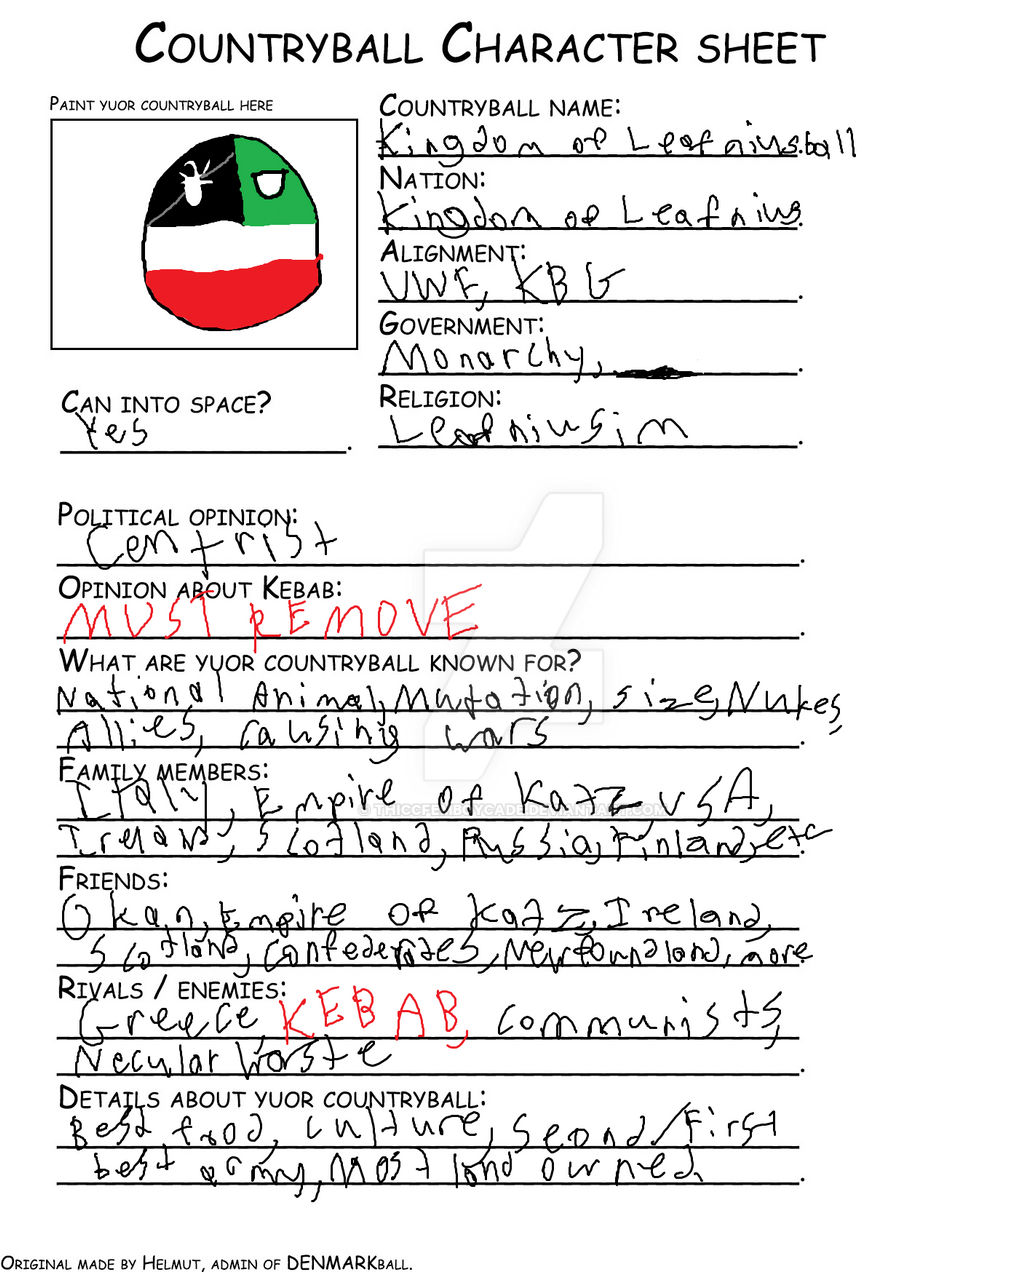 Countryball Character sheet
Paint yuor countryball here
Countryball name:
Kingdom of Leafniusball
Nation:
Kingdom of Leafnius
Alignment:
UWF, KBG
Government:
Monarchy,
Can into space?
Yes
Religion:
Leafniusim
Political opinion:
Centrist
Opinion about Kebab:
MUST REMOVE
What are yuor countryball known for?
National Animal, Mutation, size, Nukes,
Allies, causing wars
Family members:
Italy, Empire of Katz, USA,
Ireland, Scotland, Russia, Finland, etc
Friends:
Okan, Empire of Katz, Ireland,
Scotland, Confederates, Newfoundland, more
Rivals / enemies:
Greece, KEBAB, communists,
Necular Waste
Details about yuor countryball:
Best food, culture, Seond/First
best army, Most land owned
Original made by Helmut, admin of DENMARKball.